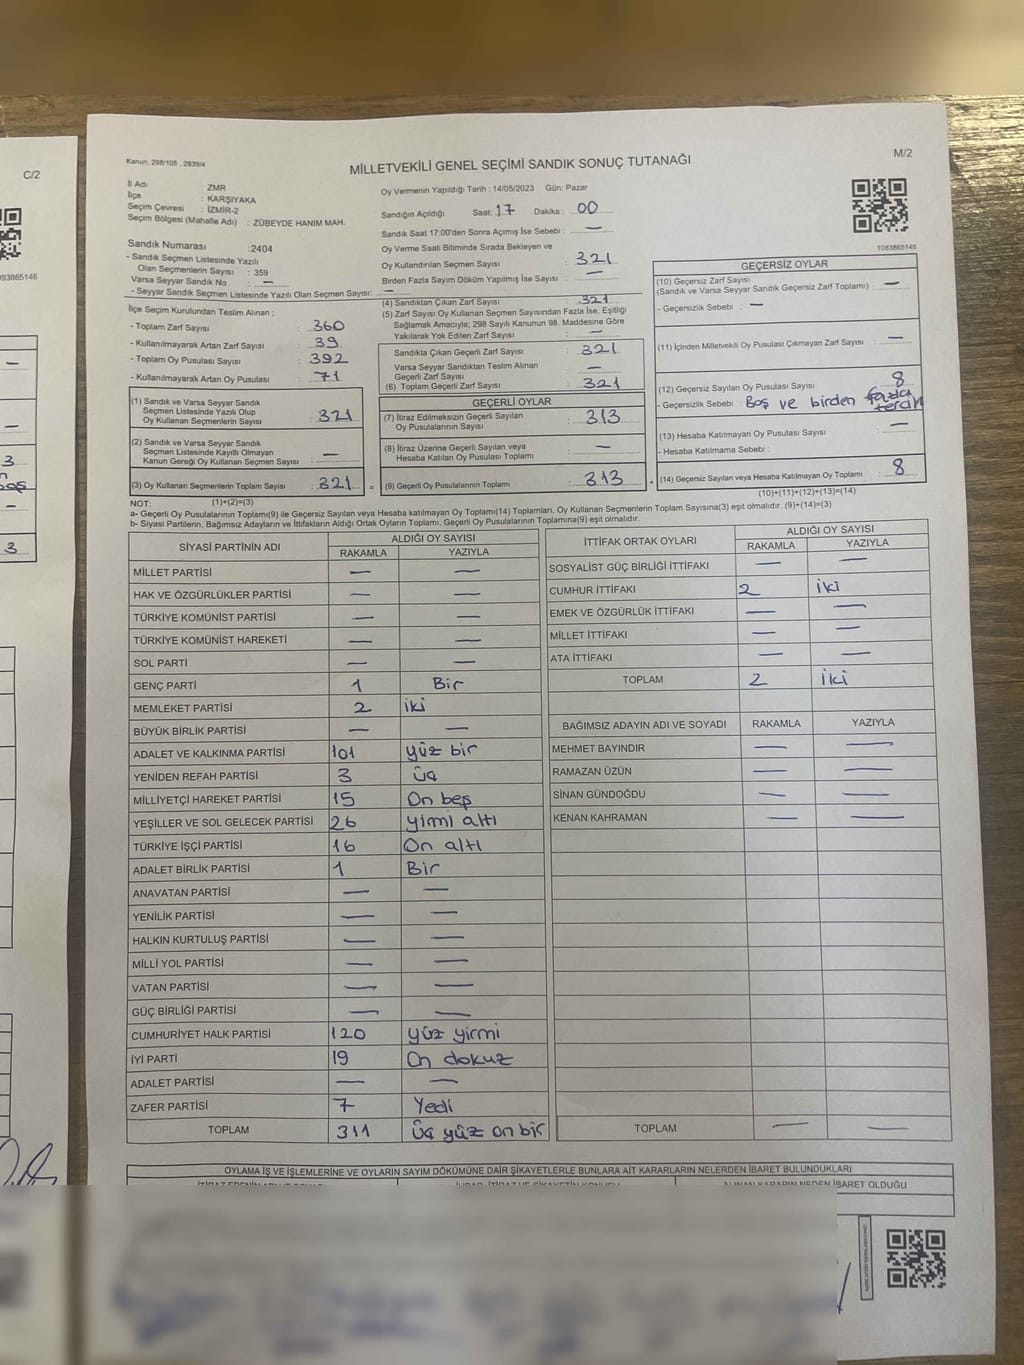 C/2
93865146
3
3
Kanun, 298/105 , 2839/4
MİLLETVEKİLİ GENEL SEÇİMİ SANDIK SONUÇ TUTANAĞI
M/2
İl Adı : ZMR
İlçe : KARŞIYAKA
Seçim Çevresi : İZMİR-2
Seçim Bölgesi (Mahalle Adı) : ZÜBEYDE HANIM MAH.
Sandık Numarası :2404
- Sandık Seçmen Listesinde Yazılı
Olan Seçmenlerin Sayısı : 359
Varsa Seyyar Sandık No : —
- Seyyar Sandık Seçmen Listesinde Yazılı Olan Seçmen Sayısı: —
İlçe Seçim Kurulundan Teslim Alınan ;
- Toplam Zarf Sayısı : 360
- Kullanılmayarak Artan Zarf Sayısı : 39
- Toplam Oy Pusulası Sayısı : 392
- Kullanılmayarak Artan Oy Pusulası : 71
(1) Sandık ve Varsa Seyyar Sandık
Seçmen Listesinde Yazılı Olup
Oy Kullanan Seçmenlerin Sayısı : 321
(2) Sandık ve Varsa Seyyar Sandık
Seçmen Listesinde Kayıtlı Olmayan
Kanun Gereği Oy Kullanan Seçmen Sayısı : —
(3) Oy Kullanan Seçmenlerin Toplam Sayısı : 321 =
Oy Vermenin Yapıldığı Tarih : 14/05/2023 Gün: Pazar
Sandığın Açıldığı Saat: 17 Dakika : 00
Sandık Saat 17:00'den Sonra Açılmış İse Sebebi : —
Oy Verme Saati Bitiminde Sırada Bekleyen ve
Oy Kullandırılan Seçmen Sayısı : 321
Birden Fazla Sayım Döküm Yapılmış İse Sayısı : —
(4) Sandıktan Çıkan Zarf Sayısı : 321
(5) Zarf Sayısı Oy Kullanan Seçmen Sayısından Fazla İse, Eşitliği
Sağlamak Amacıyla; 298 Sayılı Kanunun 98. Maddesine Göre
Yakılarak Yok Edilen Zarf Sayısı : —
Sandıkta Çıkan Geçerli Zarf Sayısı : 321
Varsa Seyyar Sandıktan Teslim Alınan
Geçerli Zarf Sayısı : —
(6) Toplam Geçerli Zarf Sayısı : 321
GEÇERLİ OYLAR
(7) İtiraz Edilmeksizin Geçerli Sayılan
Oy Pusulalarının Sayısı : 313
(8) İtiraz Üzerine Geçerli Sayılan veya
Hesaba Katılan Oy Pusulası Toplamı : —
(9) Geçerli Oy Pusulalarının Toplamı : 313
1083865146
GEÇERSİZ OYLAR
(10) Geçersiz Zarf Sayısı
(Sandık ve Varsa Seyyar Sandık Geçersiz Zarf Toplamı) : —
- Geçersizlik Sebebi : —
(11) İçinden Milletvekili Oy Pusulası Çıkmayan Zarf Sayısı : —
(12) Geçersiz Sayılan Oy Pusulası Sayısı : 8
- Geçersizlik Sebebi : Boş ve birden fazla
tercih
(13) Hesaba Katılmayan Oy Pusulası Sayısı : —
- Hesaba Katılmama Sebebi :
(14) Geçersiz Sayılan veya Hesaba Katılmayan Oy Toplamı : 8
NOT: (1)+(2)=(3)
(10)+(11)+(12)+(13)=(14)
a- Geçerli Oy Pusulalarının Toplamı(9) ile Geçersiz Sayılan veya Hesaba katılmayan Oy Toplamı(14) Toplamları, Oy Kullanan Seçmenlerin Toplam Sayısına(3) eşit olmalıdır. (9)+(14)=(3)
b- Siyasi Partilerin, Bağımsız Adayların ve İttifakların Aldığı Ortak Oyların Toplamı, Geçerli Oy Pusulalarının Toplamına(9) eşit olmalıdır.
SİYASİ PARTİNİN ADI ALDIĞI OY SAYISI
RAKAMLA YAZIYLA
MİLLET PARTİSİ — —
HAK VE ÖZGÜRLÜKLER PARTİSİ — —
TÜRKİYE KOMÜNİST PARTİSİ — —
TÜRKİYE KOMÜNİST HAREKETİ — —
SOL PARTİ — —
GENÇ PARTİ 1 Bir
MEMLEKET PARTİSİ 2 iki
BÜYÜK BİRLİK PARTİSİ — —
ADALET VE KALKINMA PARTİSİ 101 yüz bir
YENİDEN REFAH PARTİSİ 3 üç
MİLLİYETÇİ HAREKET PARTİSİ 15 On beş
YEŞİLLER VE SOL GELECEK PARTİSİ 26 yirmi altı
TÜRKİYE İŞÇİ PARTİSİ 16 On altı
ADALET BİRLİK PARTİSİ 1 Bir
ANAVATAN PARTİSİ — —
YENİLİK PARTİSİ — —
HALKIN KURTULUŞ PARTİSİ — —
MİLLİ YOL PARTİSİ — —
VATAN PARTİSİ — —
GÜÇ BİRLİĞİ PARTİSİ — —
CUMHURİYET HALK PARTİSİ 120 yüz yirmi
İYİ PARTİ 19 On dokuz
ADALET PARTİSİ — —
ZAFER PARTİSİ 7 Yedi
TOPLAM 311 üç yüz on bir
İTTİFAK ORTAK OYLARI ALDIĞI OY SAYISI
RAKAMLA YAZIYLA
SOSYALİST GÜÇ BİRLİĞİ İTTİFAKI — —
CUMHUR İTTİFAKI 2 iki
EMEK VE ÖZGÜRLÜK İTTİFAKI — —
MİLLET İTTİFAKI — —
ATA İTTİFAKI — —
TOPLAM 2 iki
BAĞIMSIZ ADAYIN ADI VE SOYADI RAKAMLA YAZIYLA
MEHMET BAYINDIR — —
RAMAZAN ÜZÜN — —
SİNAN GÜNDOĞDU — —
KENAN KAHRAMAN — —
TOPLAM — —
OYLAMA İŞ VE İŞLEMLERİNE VE OYLARIN SAYIM DÖKÜMÜNE DAİR ŞİKAYETLERLE BUNLARA AİT KARARLARIN NELERDEN İBARET BULUNDUKLARI
ALINAN KARARIN NEDEN İBARET OLDUĞU